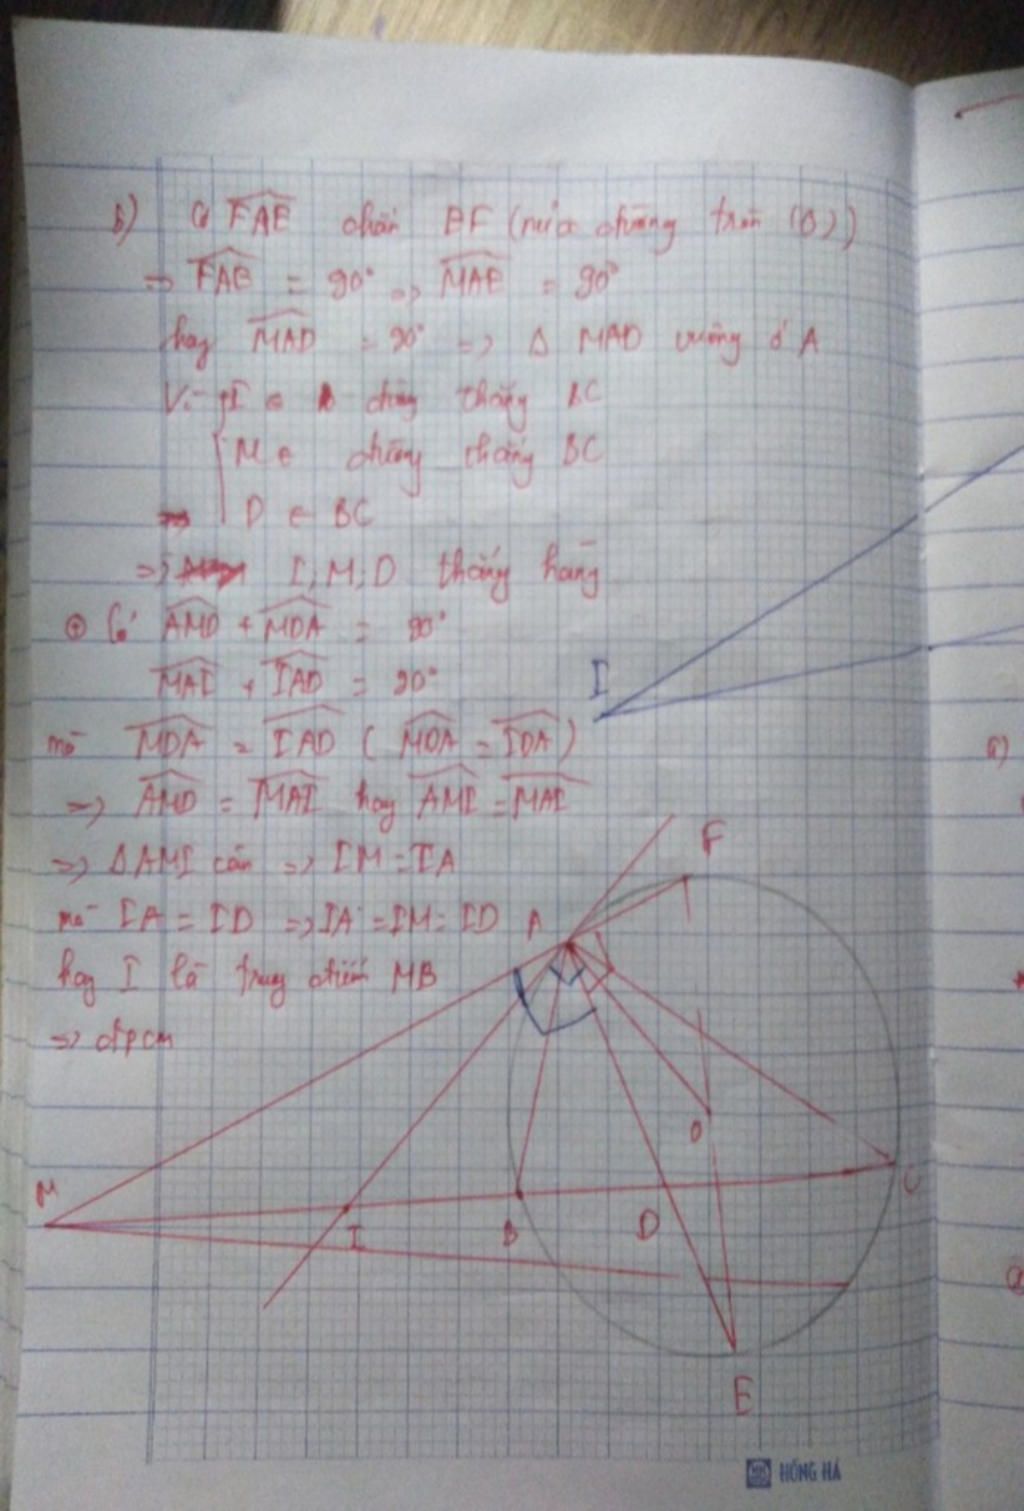 b) Có FAE chắn EF (nửa đường tròn (O))
=> FAE = 90° => MAE = 90°
hay MAD = 90° => Δ MAD vuông ở A
Vì I ∈ đường thẳng BC
M ∈ đường thẳng BC
D ∈ BC
=> I, M, D thẳng hàng
Có AMD + MDA = 90°
MAI + IAD = 90°
mà MDA = IAD (MDA = IDA)
=> AMD = MAI hay AMI = MAI
=> Δ AMI cân => IM = IA
mà IA = ID => IA = IM = ID
hay I là trung điểm MB
=> đpcm
I
F
A
O
M
I
B
D
C
E
a)
HỒNG HÀ